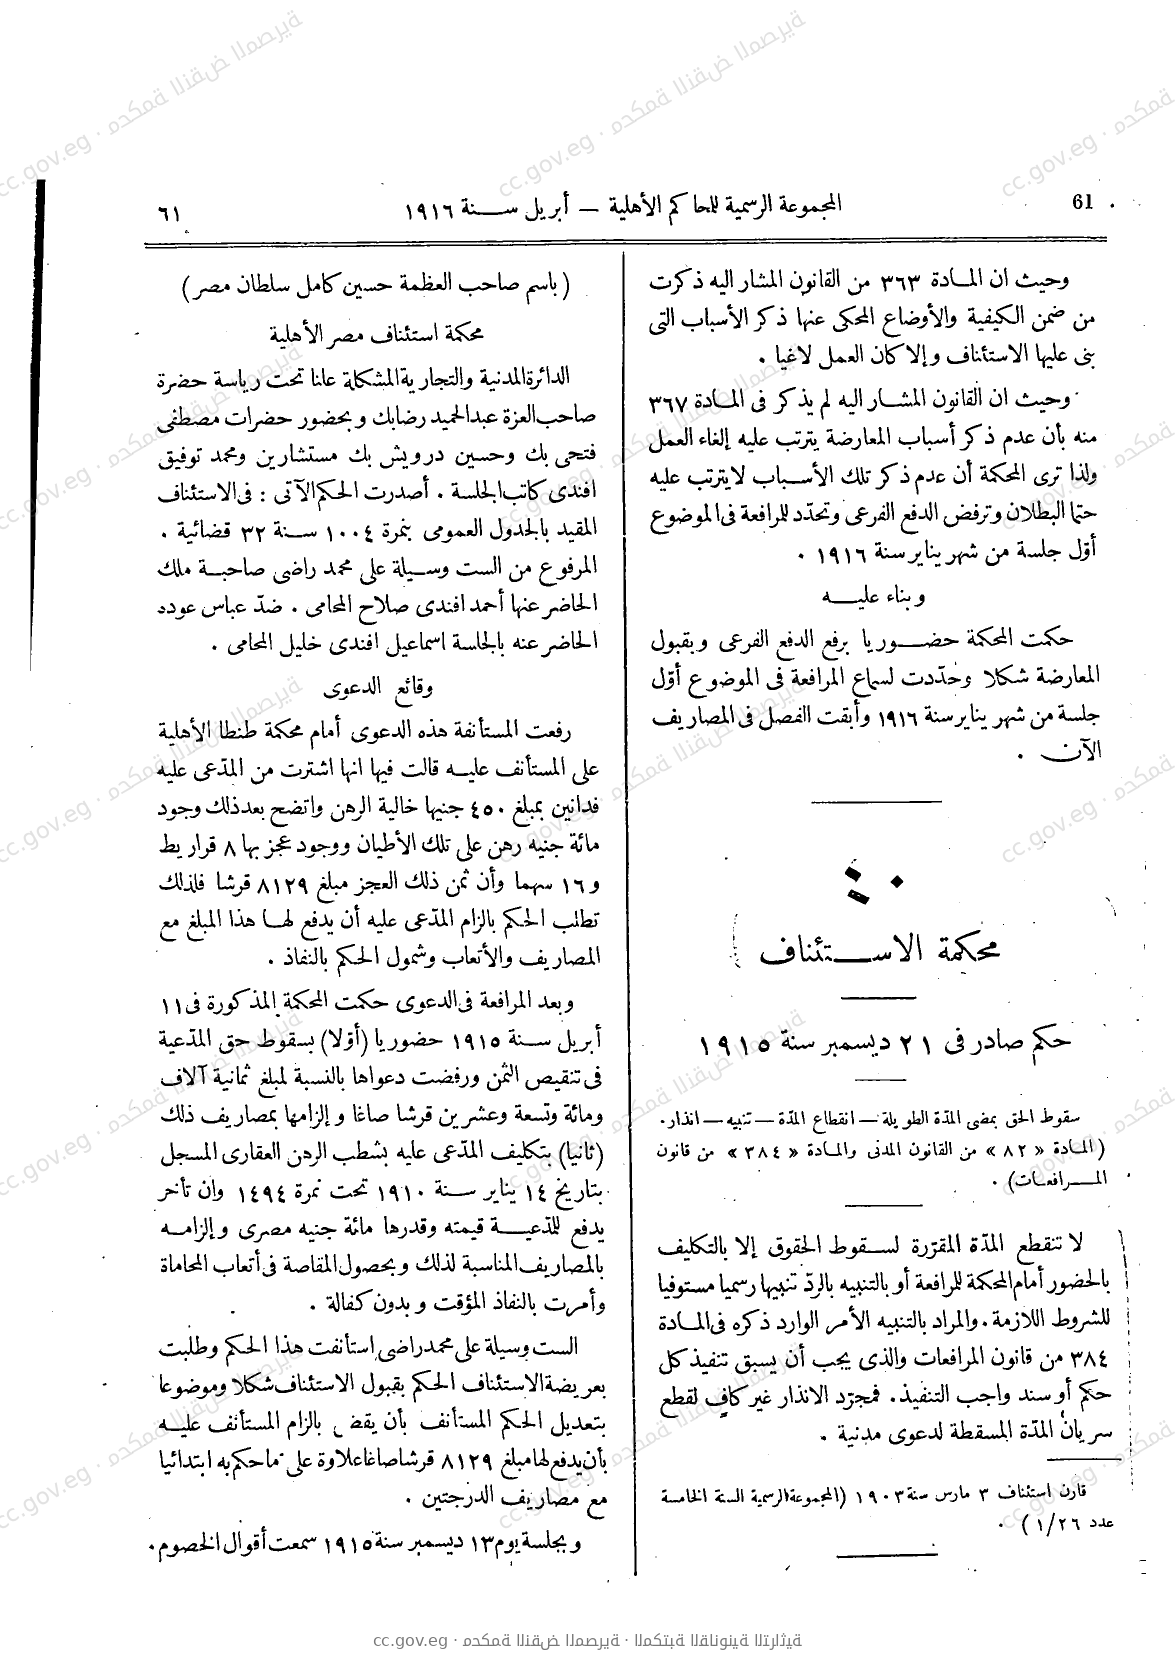 61
المجموعة الرسمية للمحاكم الأهلية — أبريل سنة ١٩١٦
٦١
وحيث ان المادة ٣٦٣ من القانون المشار اليه ذكرت
من ضمن الكيفية والأوضاع المحكى عنها ذكر الأسباب التى
بنى عليها الاستئناف والا كان العمل لاغيا .
وحيث ان القانون المشار اليه لم يذكر فى المادة ٣٦٧
منه بأن عدم ذكر أسباب المعارضة يترتب عليه إلغاء العمل
ولذا ترى المحكمة أن عدم ذكر تلك الأسباب لايترتب عليه
حتما البطلان وترفض الدفع الفرعى وتحدّد للمرافعة فى الموضوع
أوّل جلسة من شهر يناير سنة ١٩١٦ .
وبناء عليه
حكمت المحكمة حضوريا برفع الدفع الفرعى وبقبول
المعارضة شكلا وحدّدت لسماع المرافعة فى الموضوع أوّل
جلسة من شهر يناير سنة ١٩١٦ وأبقت الفصل فى المصاريف
الآن .
محكمة الاستئناف
حكم صادر فى ٢١ ديسمبر سنة ١٩١٥
سقوط الحق بمضى المدّة الطويلة — انقطاع المدّة — تنبيه — انذار.
(المادة « ٨٢ » من القانون المدنى والمادة « ٣٨٤ » من قانون
المرافعات) .
لا تنقطع المدّة المقرّرة لسقوط الحقوق إلا بالتكليف
بالحضور أمام المحكمة للمرافعة أو بالتنبيه بالردّ تنبيها رسميا مستوفيا
للشروط اللازمة . والمراد بالتنبيه الأمر الوارد ذكره فى المادة
٣٨٤ من قانون المرافعات والذى يجب أن يسبق تنفيذ كل
حكم أو سند واجب التنفيذ. فمجرّد الانذار غير كاف لقطع
سريان المدّة المسقطة لدعوى مدنية .
قارن استئناف ٣ مارس سنة ١٩٠٣ (المجموعة الرسمية السنة الخامسة
عدد ١/٢٦) .
(باسم صاحب العظمة حسين كامل سلطان مصر)
محكمة استئناف مصر الأهلية
الدائرة المدنية والتجارية المشكلة علنا تحت رياسة حضرة
صاحب العزة عبد الحميد رضا بك وبحضور حضرات مصطفى
فتحى بك وحسين درويش بك مستشارين ومحمد توفيق
افندى كاتب الجلسة . أصدرت الحكم الآتى : فى الاستئناف
المقيد بالجدول العمومى بنمرة ١٠٠٤ سنة ٣٢ قضائية .
المرفوع من الست وسيلة على محمد راضى صاحبة ملك
الحاضر عنها أحمد افندى صلاح المحامى . ضدّ عباس عوده
الحاضر عنه بالجلسة اسماعيل افندى خليل المحامى .
وقائع الدعوى
رفعت المستأنفة هذه الدعوى أمام محكمة طنطا الأهلية
على المستأنف عليه قالت فيها انها اشترت من المدّعى عليه
فدانين بمبلغ ٤٥٠ جنيها خالية الرهن واتضح بعد ذلك وجود
مائة جنيه رهن على تلك الأطيان ووجود عجز بها ٨ قراريط
و١٦ سهما وأن ثمن ذلك العجز مبلغ ٨١٢٩ قرشا فلذلك
تطلب الحكم بالزام المدّعى عليه أن يدفع لها هذا المبلغ مع
المصاريف والأتعاب وشمول الحكم بالنفاذ .
وبعد المرافعة فى الدعوى حكمت المحكمة المذكورة فى ١١
أبريل سنة ١٩١٥ حضوريا (أوّلا) بسقوط حق المدّعية
فى تنقيص الثمن ورفضت دعواها بالنسبة لمبلغ ثمانية آلاف
ومائة وتسعة وعشرين قرشا صاغا وإلزامها بمصاريف ذلك
(ثانيا) بتكليف المدّعى عليه بشطب الرهن العقارى المسجل
بتاريخ ١٤ يناير سنة ١٩١٠ تحت نمرة ١٤٩٤ وان تأخر
يدفع للمدّعية قيمته وقدرها مائة جنيه مصرى وإلزامه
بالمصاريف المناسبة لذلك وبحصول المقاصة فى أتعاب المحاماة
وأمرت بالنفاذ المؤقت وبدون كفالة .
الست وسيلة على محمد راضى استأنفت هذا الحكم وطلبت
بعريضة الاستئناف الحكم بقبول الاستئناف شكلا وموضوعا
بتعديل الحكم المستأنف بأن يقضى بالزام المستأنف عليه
بأن يدفع لها مبلغ ٨١٢٩ قرشا صاغا علاوة على ما حكم به ابتدائيا
مع مصاريف الدرجتين .
وبجلسة يوم ١٣ ديسمبر سنة ١٩١٥ سمعت أقوال الخصوم .
cc.gov.eg · محكمة النقض المصرية · المكتبة القانونية التراثية